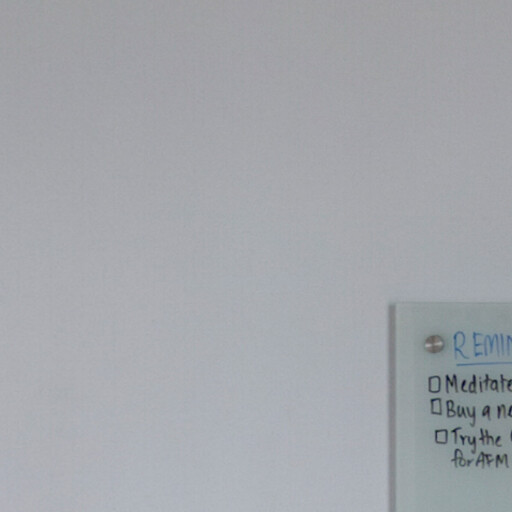 REMIN
Meditate
Buy a ne
Try the
for AFM